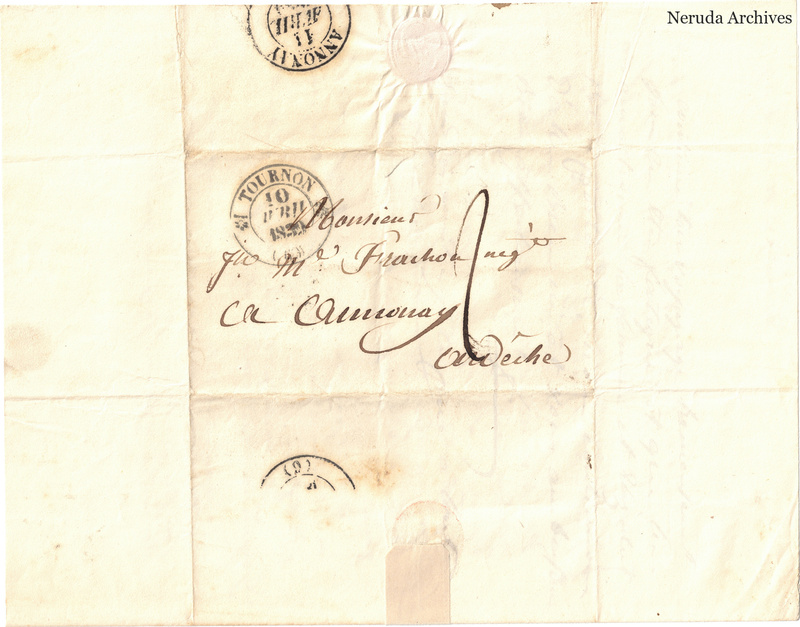 Neruda Archives
ANNONAY
11
AVRIL
TOURNON
10
AVRIL
Monsieur
Jn Md Frachon négt
a Annonay
ardèche
(6)